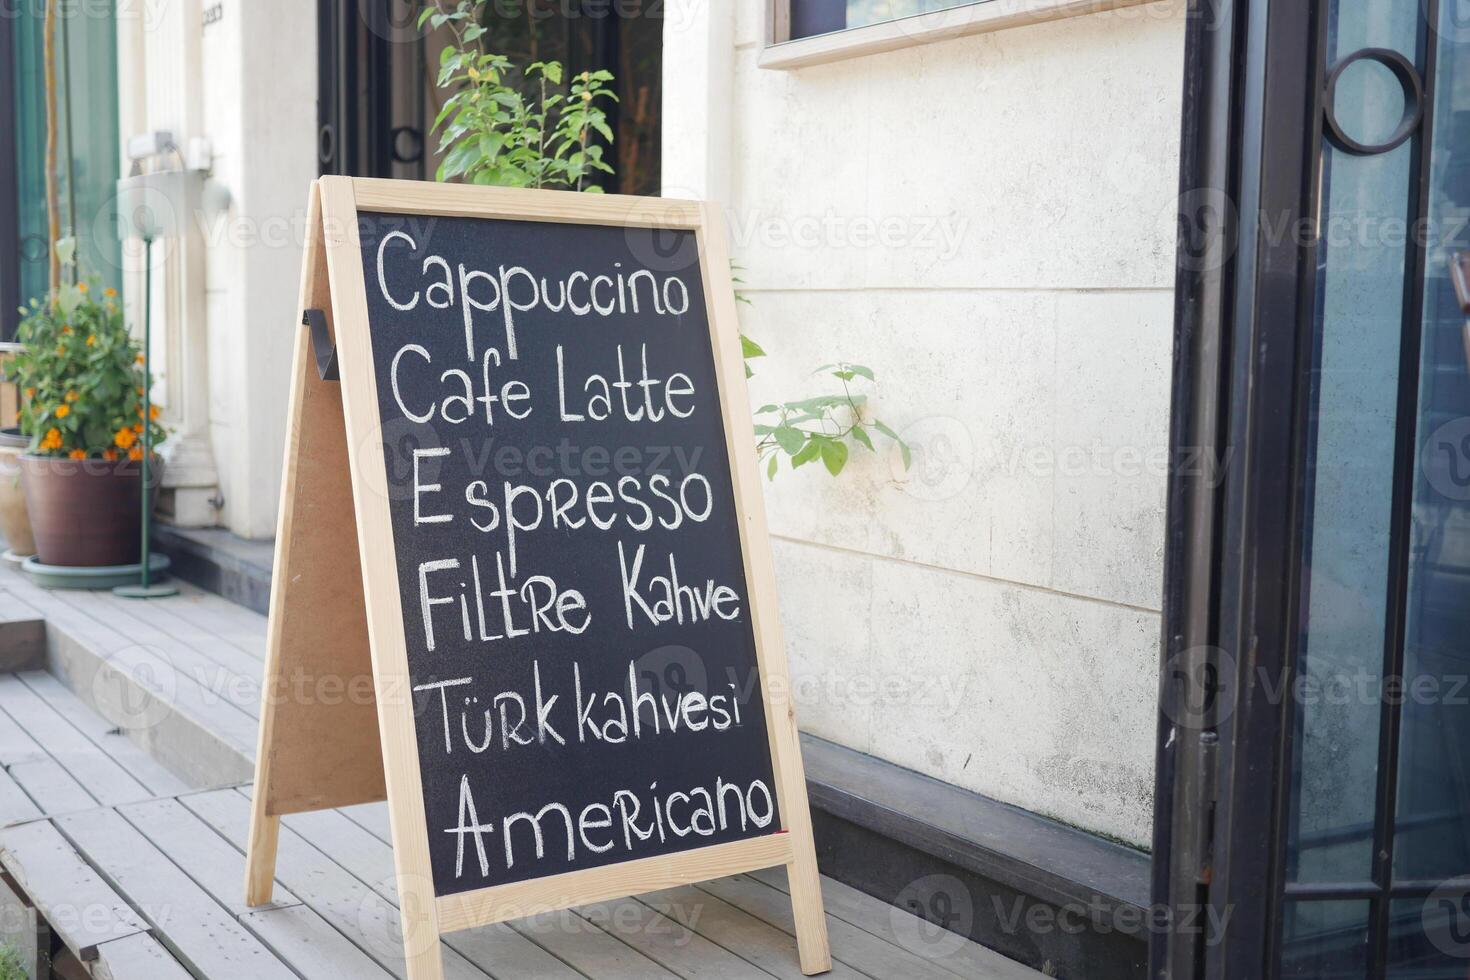 Cappuccino
Cafe Latte
Espresso
Filtre Kahve
Türk kahvesi
Americano